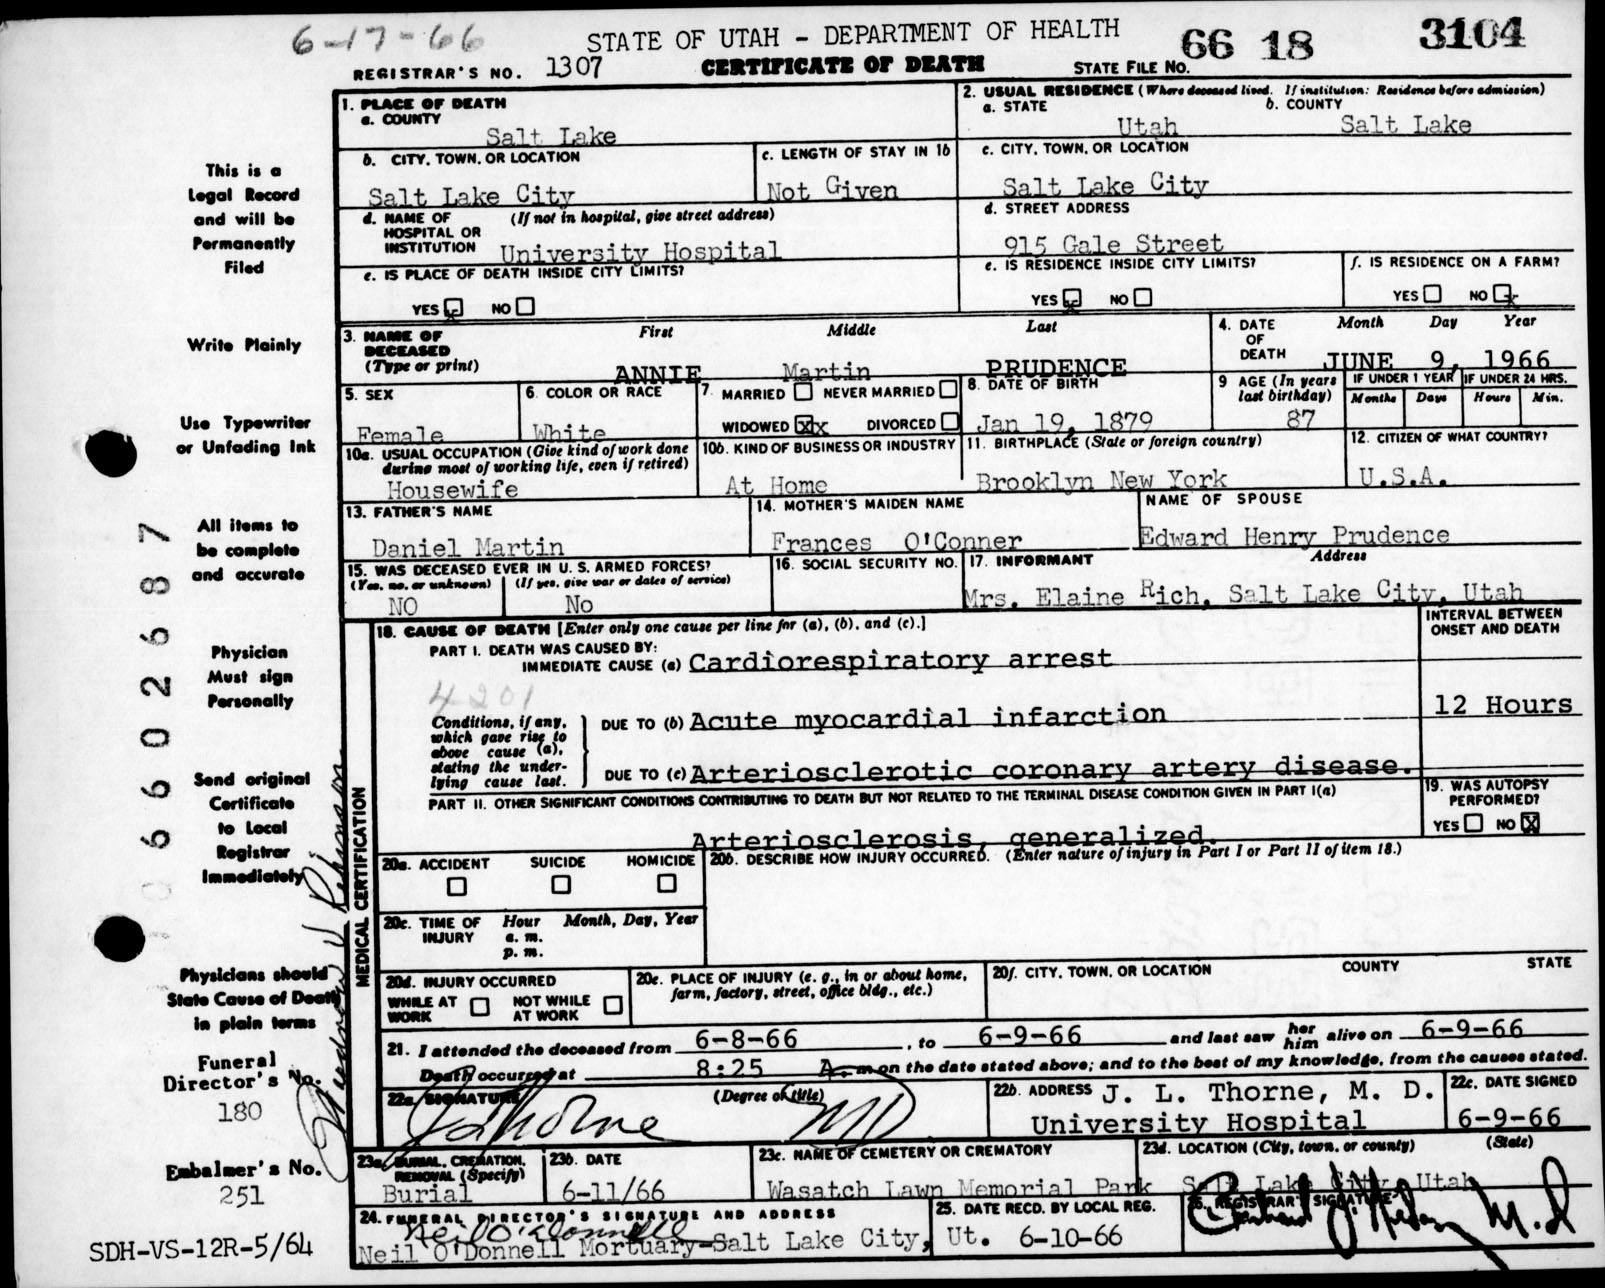 6-17-66
STATE OF UTAH - DEPARTMENT OF HEALTH
66 18 3104
REGISTRAR'S NO. 1307 CERTIFICATE OF DEATH STATE FILE NO.
1. PLACE OF DEATH
a. COUNTY
Salt Lake
2. USUAL RESIDENCE (Where deceased lived. If institution: Residence before admission)
a. STATE b. COUNTY
Utah Salt Lake
b. CITY, TOWN, OR LOCATION
Salt Lake City
c. LENGTH OF STAY IN 1b
Not Given
c. CITY, TOWN, OR LOCATION
Salt Lake City
d. NAME OF HOSPITAL OR INSTITUTION (If not in hospital, give street address)
University Hospital
d. STREET ADDRESS
915 Gale Street
e. IS PLACE OF DEATH INSIDE CITY LIMITS?
YES x NO
e. IS RESIDENCE INSIDE CITY LIMITS?
YES x NO
f. IS RESIDENCE ON A FARM?
YES NO x
3. NAME OF DECEASED (Type or print)
First Middle Last
ANNIE Martin PRUDENCE
4. DATE OF DEATH
Month Day Year
JUNE 9, 1966
5. SEX
Female
6. COLOR OR RACE
White
7. MARRIED NEVER MARRIED
WIDOWED xx DIVORCED
8. DATE OF BIRTH
Jan 19, 1879
9 AGE (In years last birthday)
87
IF UNDER 1 YEAR IF UNDER 24 HRS.
Months Days Hours Min.
10a. USUAL OCCUPATION (Give kind of work done during most of working life, even if retired)
Housewife
10b. KIND OF BUSINESS OR INDUSTRY
At Home
11. BIRTHPLACE (State or foreign country)
Brooklyn New York
12. CITIZEN OF WHAT COUNTRY?
U.S.A.
13. FATHER'S NAME
Daniel Martin
14. MOTHER'S MAIDEN NAME
Frances O'Conner
NAME OF SPOUSE
Edward Henry Prudence
15. WAS DECEASED EVER IN U. S. ARMED FORCES?
(Yes, no, or unknown) (If yes, give war or dates of service)
NO No
16. SOCIAL SECURITY NO.
17. INFORMANT Address
Mrs. Elaine Rich, Salt Lake City, Utah
18. CAUSE OF DEATH [Enter only one cause per line for (a), (b), and (c).]
INTERVAL BETWEEN ONSET AND DEATH
PART I. DEATH WAS CAUSED BY:
IMMEDIATE CAUSE (a) Cardiorespiratory arrest
4201
Conditions, if any, which gave rise to above cause (a), stating the underlying cause last.
DUE TO (b) Acute myocardial infarction
12 Hours
DUE TO (c) Arteriosclerotic coronary artery disease.
PART II. OTHER SIGNIFICANT CONDITIONS CONTRIBUTING TO DEATH BUT NOT RELATED TO THE TERMINAL DISEASE CONDITION GIVEN IN PART I(a)
Arteriosclerosis, generalized.
19. WAS AUTOPSY PERFORMED?
YES NO X
20a. ACCIDENT SUICIDE HOMICIDE
20b. DESCRIBE HOW INJURY OCCURRED. (Enter nature of injury in Part I or Part II of item 18.)
20c. TIME OF INJURY Hour Month, Day, Year
a. m.
p. m.
20d. INJURY OCCURRED
WHILE AT WORK NOT WHILE AT WORK
20e. PLACE OF INJURY (e. g., in or about home, farm, factory, street, office bldg., etc.)
20f. CITY, TOWN, OR LOCATION COUNTY STATE
21. I attended the deceased from 6-8-66, to 6-9-66 and last saw her him alive on 6-9-66
Death occurred at 8:25 A. m on the date stated above; and to the best of my knowledge, from the causes stated.
22a. SIGNATURE (Degree or title)
J L Thorne MD
22b. ADDRESS J. L. Thorne, M. D.
University Hospital
22c. DATE SIGNED
6-9-66
23a. BURIAL, CREMATION, REMOVAL (Specify)
Burial
23b. DATE
6-11/66
23c. NAME OF CEMETERY OR CREMATORY
Wasatch Lawn Memorial Park
23d. LOCATION (City, town, or county) (State)
Salt Lake City, Utah
24. FUNERAL DIRECTOR'S SIGNATURE AND ADDRESS
Neil O'Donnell
Neil O'Donnell Mortuary-Salt Lake City, Ut.
25. DATE RECD. BY LOCAL REG.
6-10-66
26. REGISTRAR'S SIGNATURE
M.D
This is a
Legal Record
and will be
Permanently
Filed
Write Plainly
Use Typewriter
or Unfading Ink
All items to
be complete
and accurate
Physician
Must sign
Personally
Send original
Certificate
to Local
Registrar
Immediately
Physicians should
State Cause of Death
in plain terms
Funeral
Director's No.
180
Embalmer's No.
251
SDH-VS-12R-5/64
MEDICAL CERTIFICATION
06602687